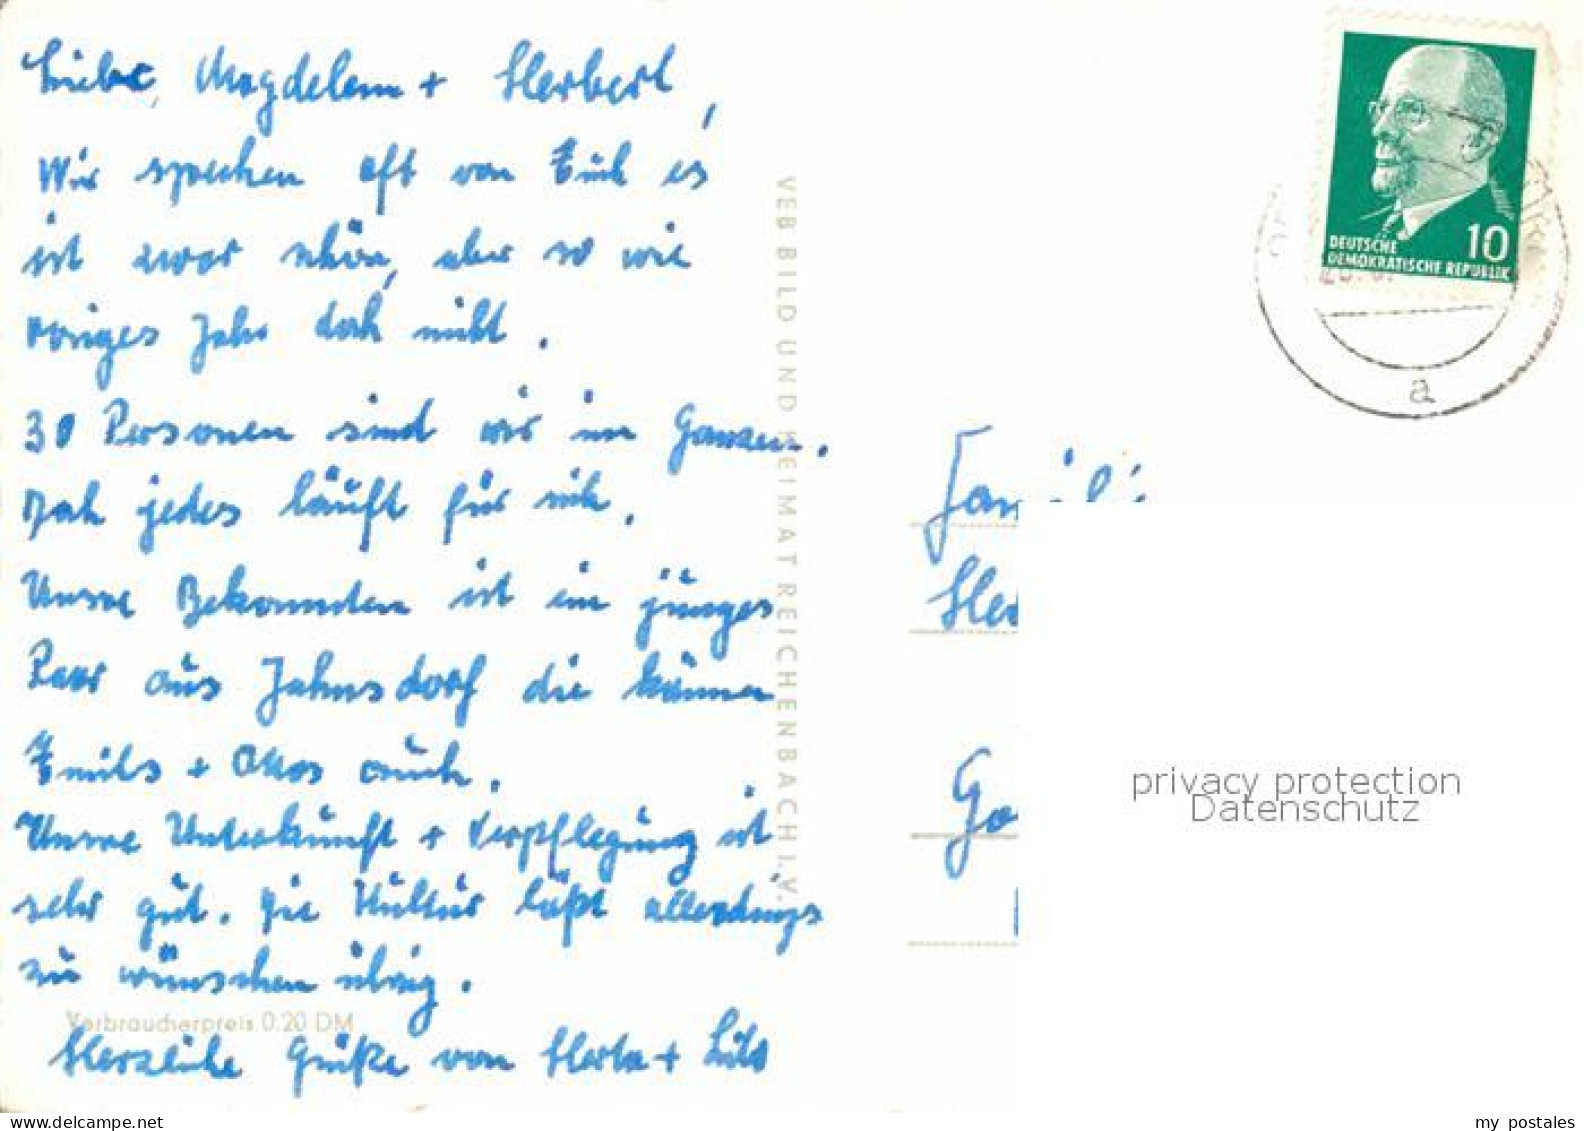 Liebe Magdalena + Herbert,
Wir sprechen oft von Euch es
ist zwar schön, aber so wie
voriges Jahr doch nicht.
30 Personen sind wir im Ganzen.
Doch jedes läuft für sich.
Unsre Bekannten ist ein junges
Paar aus Jahnsdorf die können
Emils + Ottos auch.
Unsre Unterkunft + Verpflegung ist
sehr gut. Die Kultur läßt allerdings
zu wünschen übrig.
Herzliche Grüße von Herta +
VEB BILD UND HEIMAT REICHENBACH I. V.
Verbraucherpreis 0.20 DM
DEUTSCHE
DEMOKRATISCHE REPUBLIK
10
a
privacy protection
Datenschutz
my postales